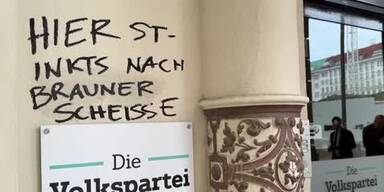 HIER ST-
INKTS NACH
BRAUNER
SCHEISSE
Die
Volkspartei
Die
Volkspartei